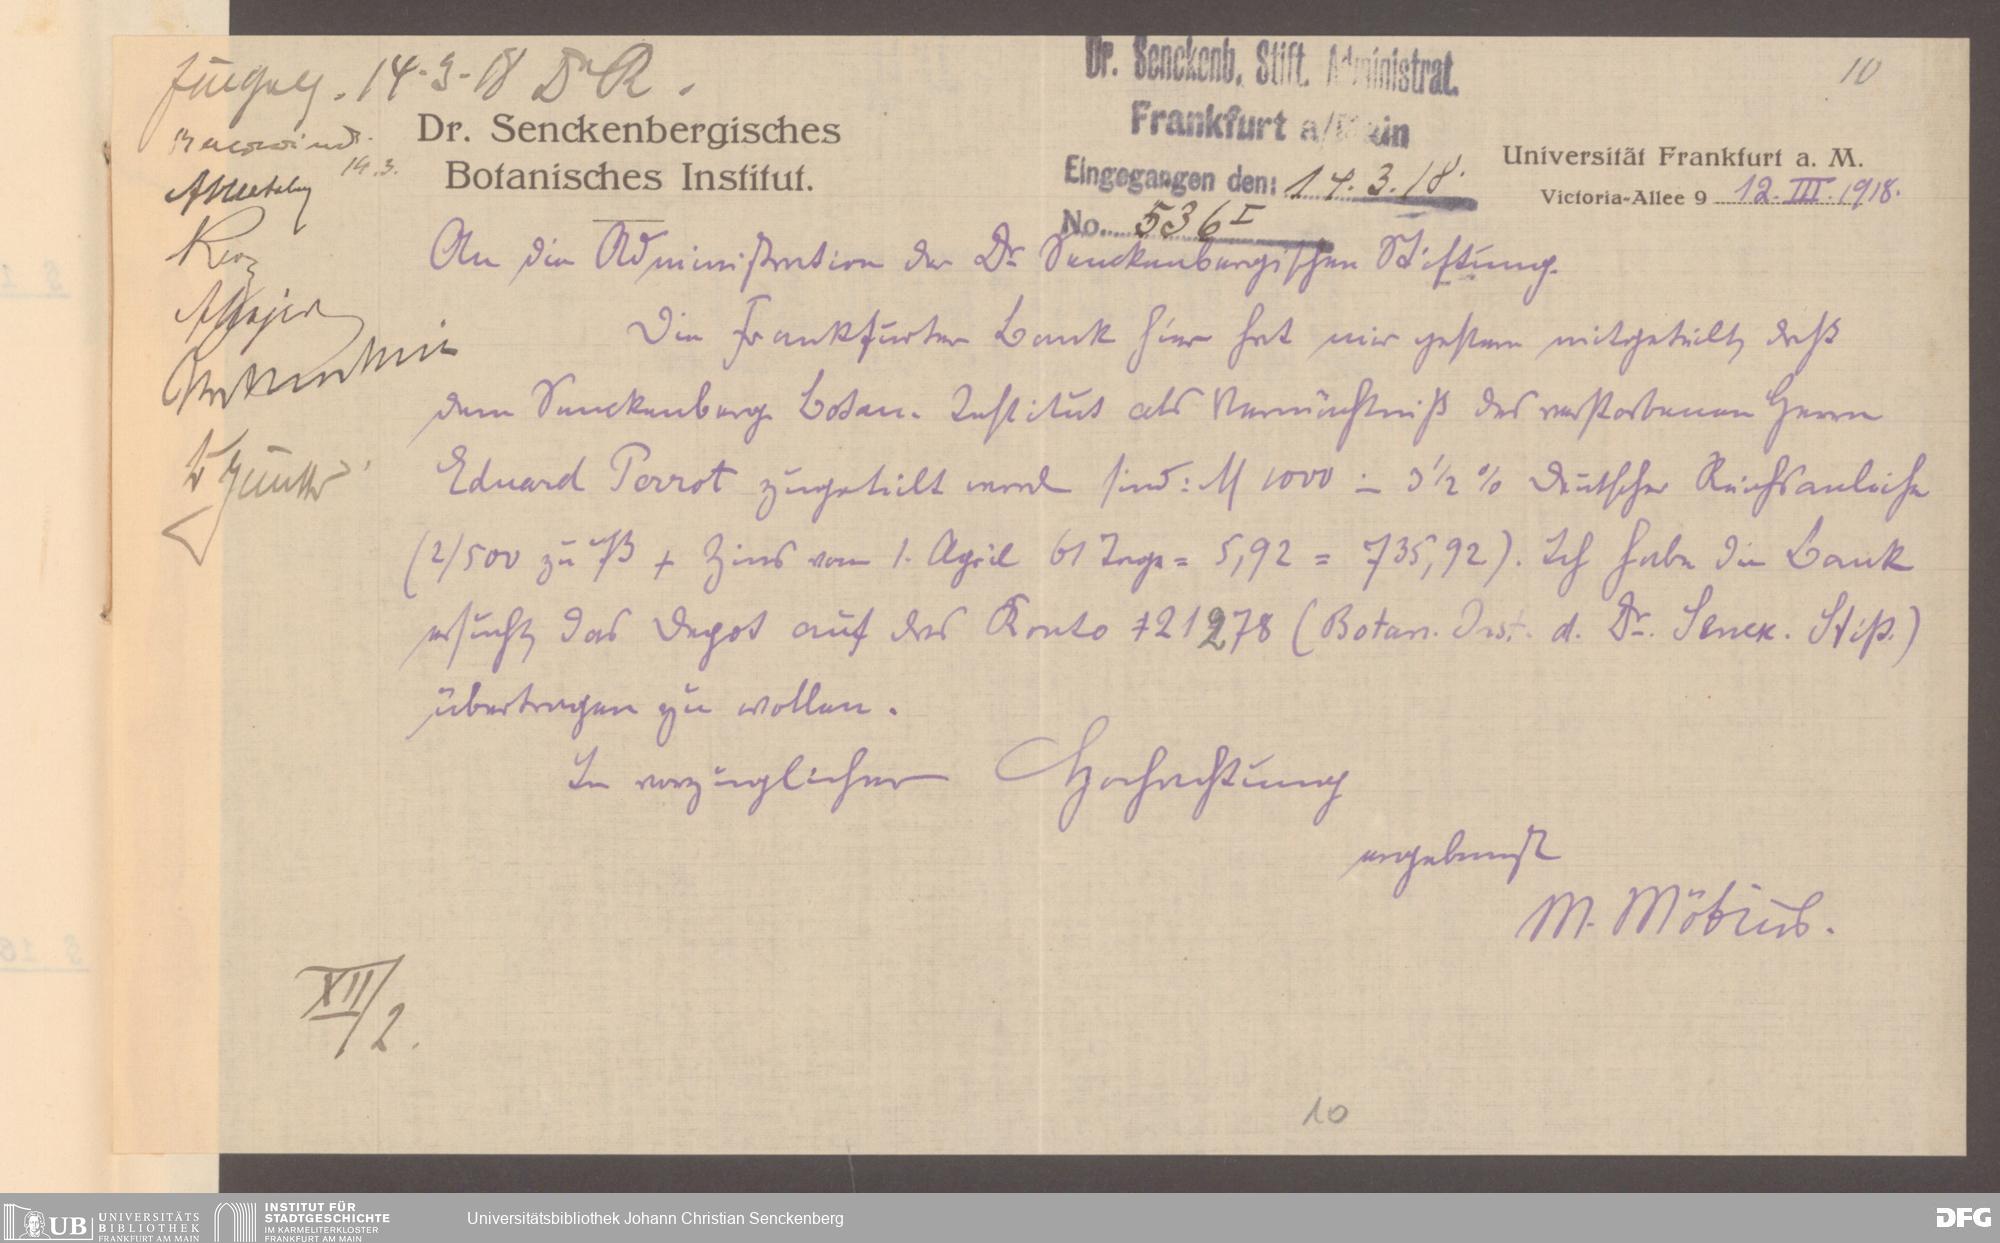 14.3.18 Dr R.
14.3.
Dr. Senckenbergisches
Botanisches Institut.
Dr. Senckenb. Stift. Administrat.
Frankfurt a/Main
Eingegangen den: 14.3.18.
No. 536 I
10
Universität Frankfurt a. M.
Victoria-Allee 9 12. III. 1918.
An die Administration der Dr. Senckenbergischen Stiftung.
Die Frankfurter Bank hier hat mir gestern mitgeteilt, daß
dem Senckenberg. Botan. Institut als Vermächtniß des verstorbenen Herrn
Eduard Perrot zugeteilt word sind: M 1000 — 3 1/2 % Deutscher Reichsanleihe
(2/500 zu + Zins vom 1. April 61 Tage = 5,92 = 735,92). Ich habe die Bank
ersucht, das Depot auf das Konto 21278 (Botan. Inst. d. Dr. Senck. Stift.)
übertragen zu wollen.
In vorzüglicher Hochachtung
ergebenst
M. Möbius.
XII/2.
10
UB UNIVERSITÄTS
BIBLIOTHEK
FRANKFURT AM MAIN
INSTITUT FÜR
STADTGESCHICHTE
IM KARMELITERKLOSTER
FRANKFURT AM MAIN
Universitätsbibliothek Johann Christian Senckenberg
DFG